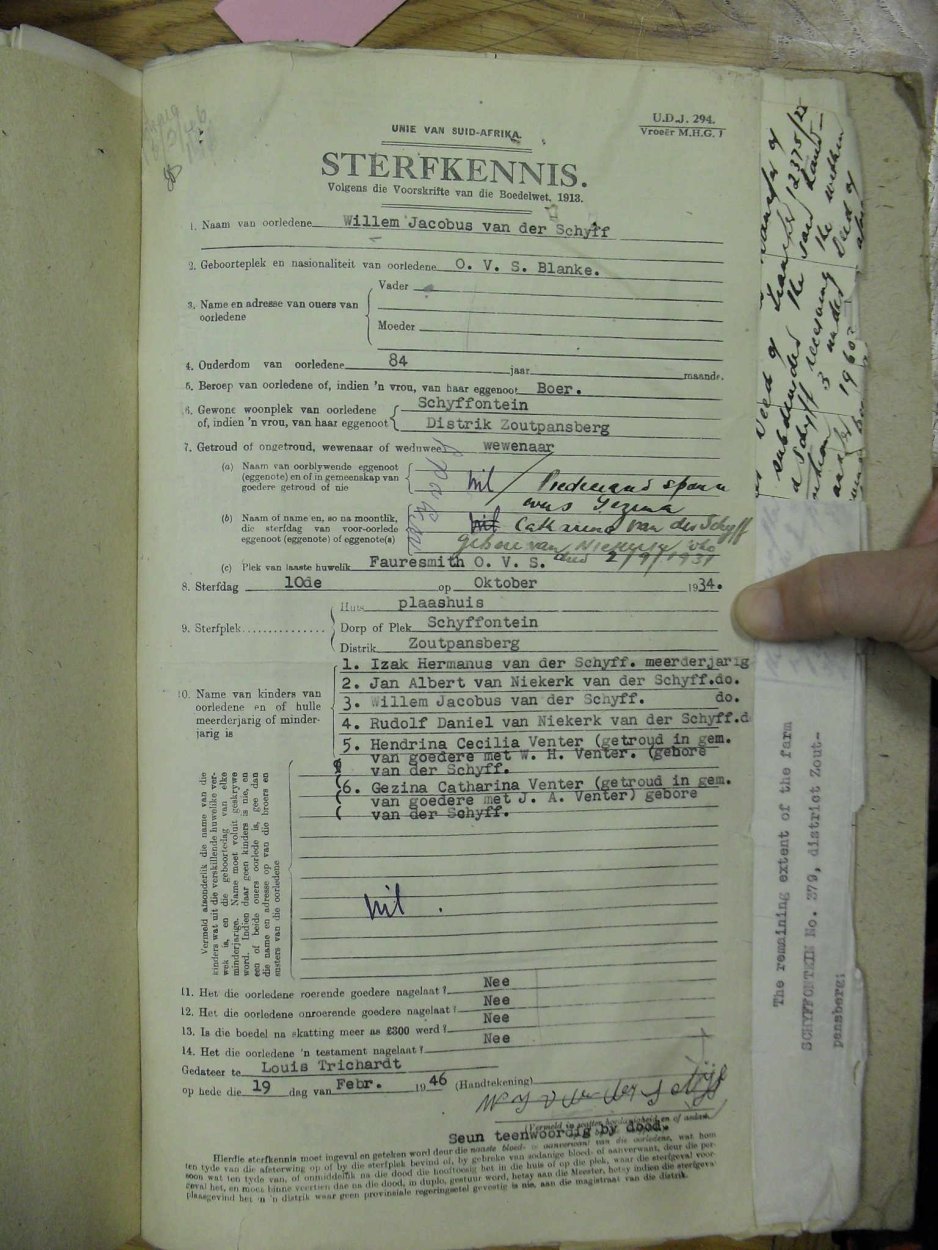 UNIE VAN SUID-AFRIKA.
U.D.J. 294.
Vroeër M.H.G. 1
STERFKENNIS.
Volgens die Voorskrifte van die Boedelwet, 1913.
1. Naam van oorledene Willem Jacobus van der Schyff
2. Geboorteplek en nasionaliteit van oorledene O. V. S. Blanke.
3. Name en adresse van ouers van oorledene
Vader
Moeder
4. Ouderdom van oorledene 84 jaar maande.
5. Beroep van oorledene of, indien 'n vrou, van haar eggenoot Boer.
6. Gewone woonplek van oorledene Schyffontein
of, indien 'n vrou, van haar eggenoot Distrik Zoutpansberg
7. Getroud of ongetroud, wewenaar of weduwee wewenaar
(a) Naam van oorblywende eggenoot
(eggenote) en of in gemeenskap van
goedere getroud of nie
nil Predeceased spouse
was Gezina
(b) Naam of name en, so na moontlik,
die sterfdag van voor-oorlede
eggenoot (eggenote) of eggenote(s)
nil Catharina van der Schyff
gebore van Niekerk who
died 2/9/1931
(c) Plek van laaste huwelik Fauresmith O. V. S.
8. Sterfdag 10de op Oktober 1934.
9. Sterfplek
Huis plaashuis
Dorp of Plek Schyffontein
Distrik Zoutpansberg
10. Name van kinders van
oorledene en of hulle
meerderjarig of minder-
jarig is
1. Izak Hermanus van der Schyff. meerderjarig
2. Jan Albert van Niekerk van der Schyff.do.
3. Willem Jacobus van der Schyff. do.
4. Rudolf Daniel van Niekerk van der Schyff.d
5. Hendrina Cecilia Venter (getroud in gem.
van goedere met W. H. Venter. (gebore
van der Schyff.
6. Gezina Catharina Venter (getroud in gem.
van goedere met J. A. Venter) gebore
van der Schyff.
Vermeld afsonderlik die name van die
kinders wat uit die verskillende huwelike ver-
wek is, en die geboortedag van elke
minderjarige. Name moet voluit geskrywe
word. Indien daar geen kinders is nie, en
een of beide ouers oorlede is, gee dan
die name en adresse op van die broers en
susters van die oorledene
nil.
11. Het die oorledene roerende goedere nagelaat? Nee
12. Het die oorledene onroerende goedere nagelaat? Nee
13. Is die boedel na skatting meer as £300 werd? Nee
14. Het die oorledene 'n testament nagelaat? Nee
Gedateer te Louis Trichardt
op hede die 19 dag van Febr. 1946 (Handtekening)
W J v d Schyff
Seun teenwoordig by dood.
Hierdie sterfkennis moet ingevul en geteken word deur die naaste bloed- of aanverwant van die oorledene, wat hom
ten tyde van die afsterwing op of by die sterfplek bevind of, by gebreke van sodanige bloed- of aanverwant, deur die per-
soon wat ten tyde van, of onmiddellik na die dood die hooftoesig het in die huis of op die plek, waar die sterfgeval voor-
geval het, en moet binne veertien dae na die dood, in duplo, gestuur word, hetsy aan die Meester, hetsy indien die sterfgeval
plaasgevind het in 'n distrik waar geen provinsiale regeringsetel gevestig is nie, aan die magistraat van die distrik.
The remaining extent of the farm
SCHYFFONTEIN No. 379, district Zout-
pansberg;